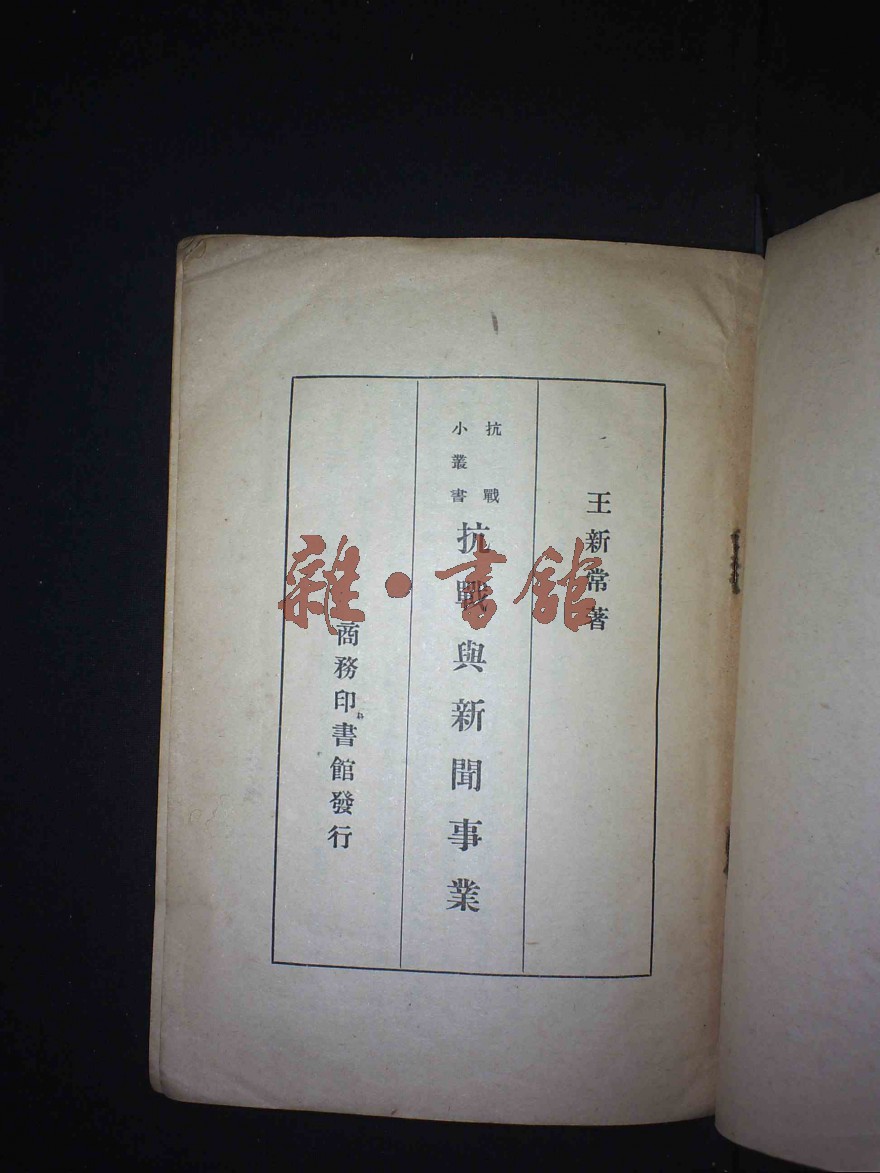 王新常著
抗戰
小叢書
抗戰與新聞事業
商務印書館發行
雜·書館